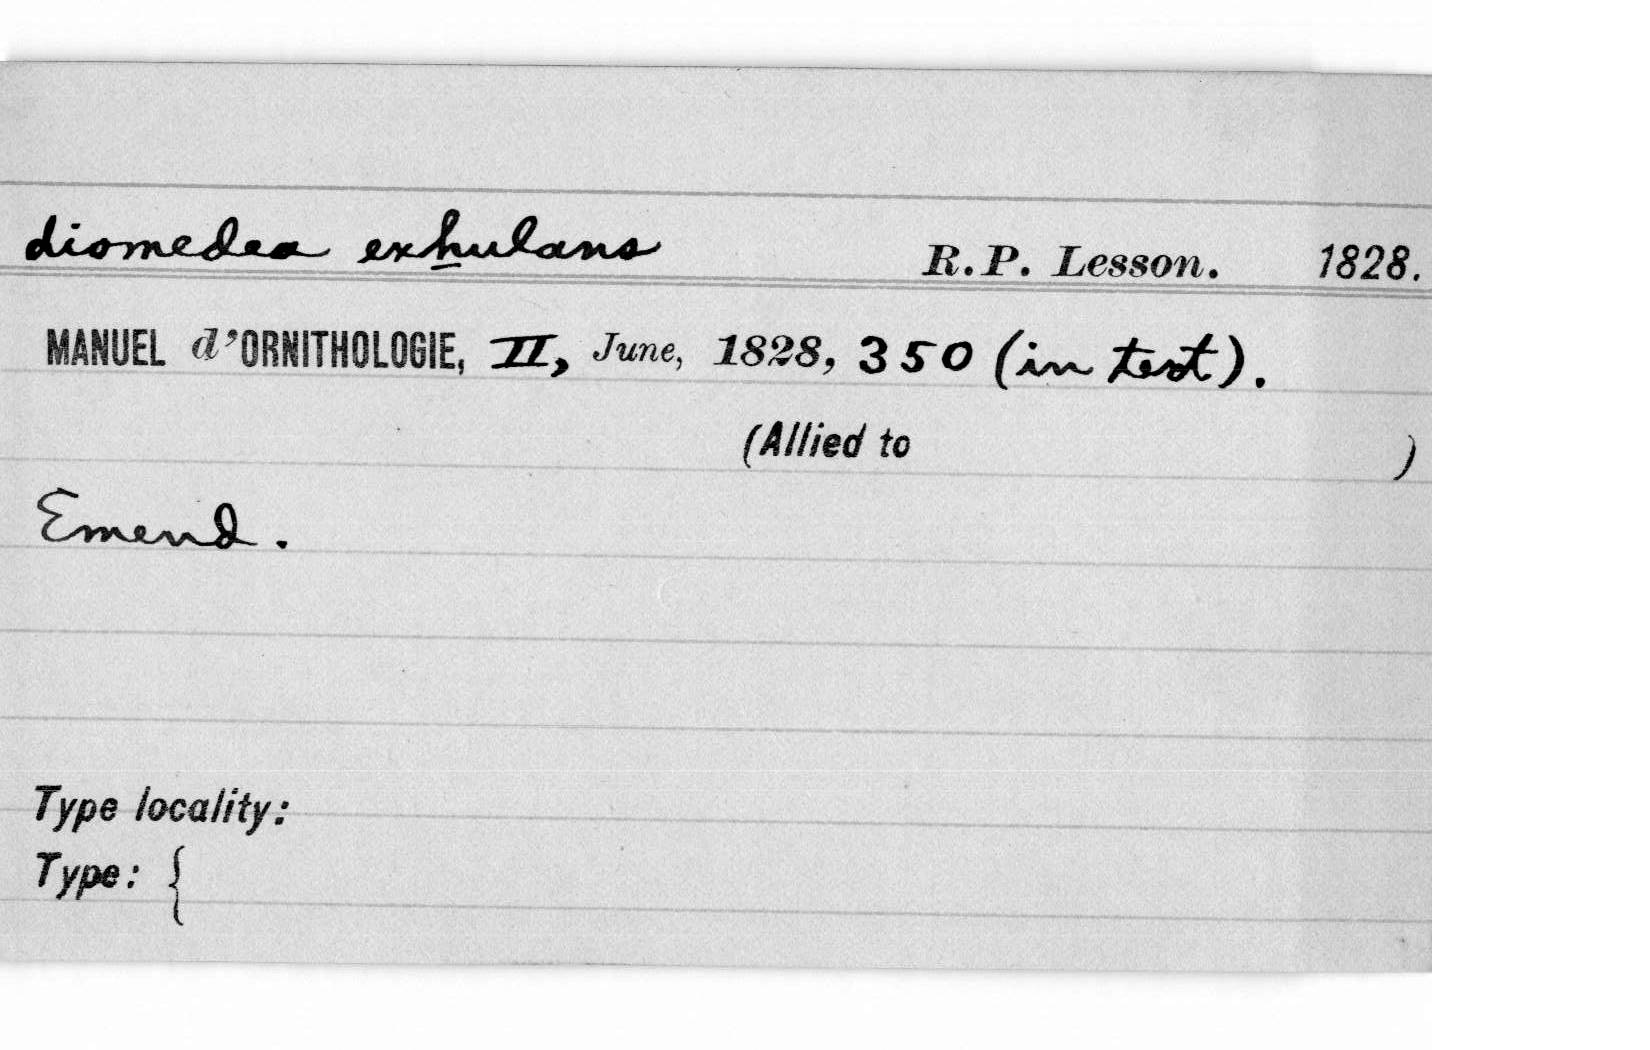 diomedea exhulans R.P. Lesson. 1828.
MANUEL d'ORNITHOLOGIE, II, June, 1828, 350 (in text).
(Allied to )
Emend.
Type locality:
Type: {